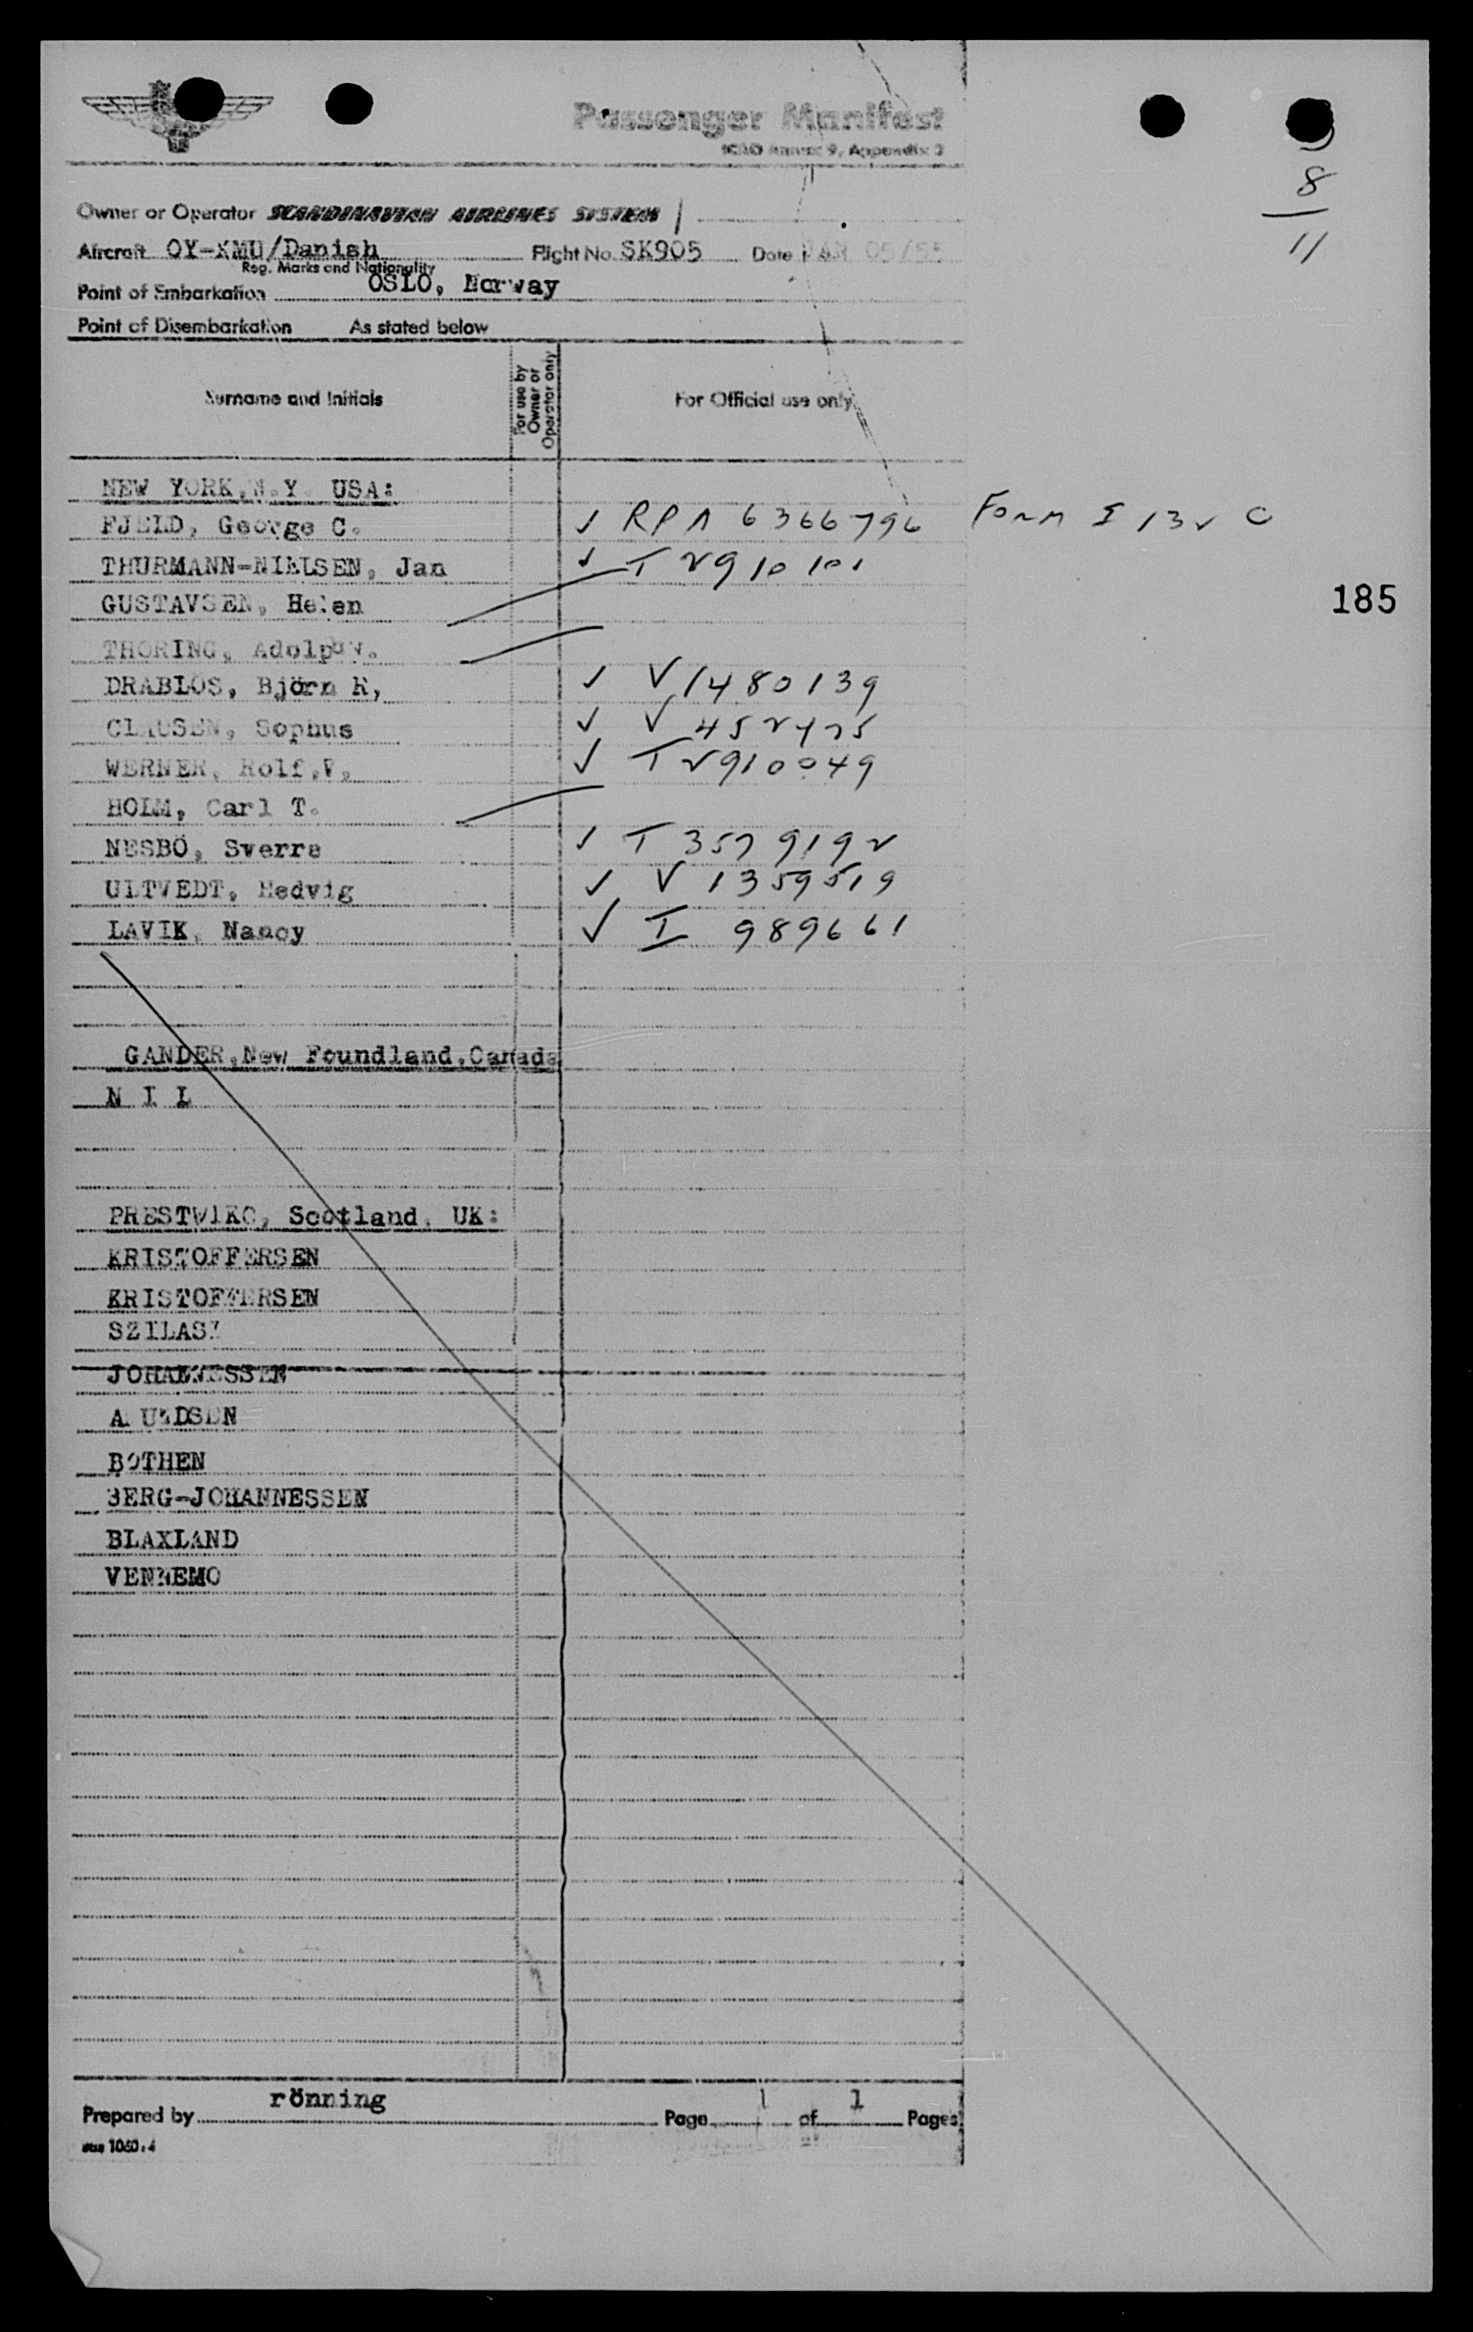 Passenger Manifest
ICAO Annex 9, Appendix 3
3
8
11
Owner or Operator SCANDINAVIAN AIRLINES SYSTEM
Aircraft OY-KMU/Danish Flight No. SK905 Date JAN 05/55
Reg. Marks and Nationality
Point of Embarkation OSLO, Norway
Point of Disembarkation As stated below
Surname and Initials For use by Owner or Operator only For Official use only
NEW YORK, N.Y. USA:
FJELD, George C. ✓ RPA 6366796 Form I 132 C
THURMANN-NIELSEN, Jan ✓ T 2910101
GUSTAVSEN, Helen
185
THORING, Adolph V.
DRABLOS, Björn K, ✓ V1480139
CLAUSEN, Sophus ✓ V 452425
WERNER, Rolf,V, ✓ T 2910049
HOLM, Carl T.
NESBÖ, Sverre ✓ T 3579192
ULTVEDT, Hedvig ✓ V 1359519
LAVIK, Nancy ✓ I 989661
GANDER,New Foundland,Canada
N I L
PRESTWIKC, Scotland, UK:
KRISTOFFERSEN
KRISTOFFERSEN
SZILASI
JOHANNESSEN
AMUNDSEN
BOTHEN
BERG-JOHANNESSEN
BLAXLAND
VENNEMO
Prepared by rönning Page 1 of 1 Pages
sas 1060.4